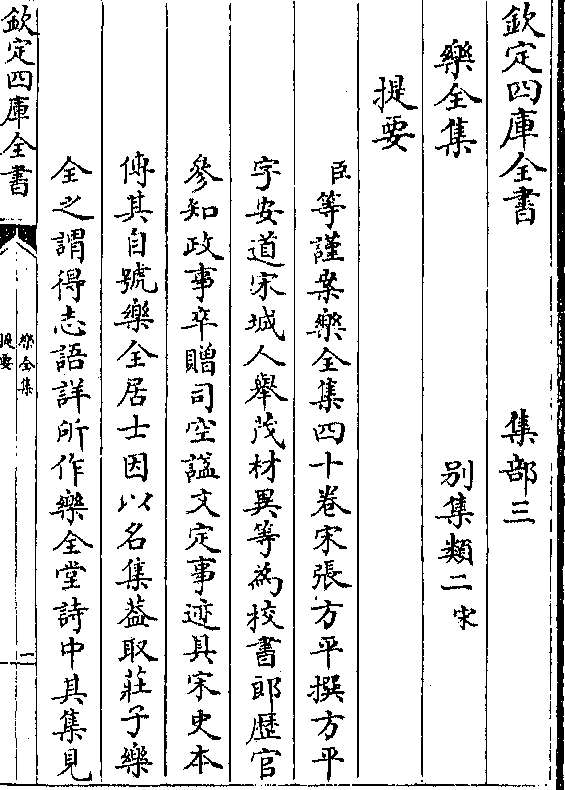 欽定四庫全書　集部三
樂全集　别集類二宋
提要
臣等謹案樂全集四十卷宋張方平撰方平
字安道宋城人舉茂材異等為校書郎歴官
參知政事卒贈司空諡文定事迹具宋史本
傳其自號樂全居士因以名集葢取莊子樂
全之謂得志語詳所作樂全堂詩中其集見
欽定四庫全書
樂全集
提要
一